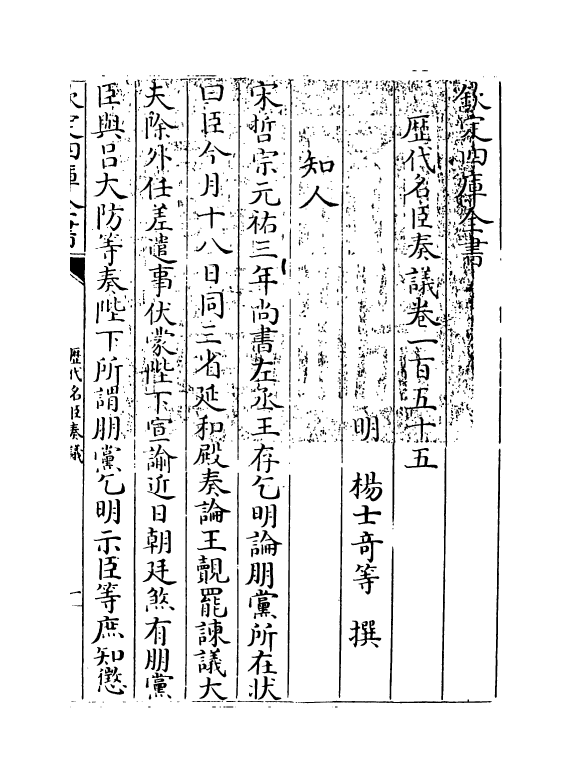 欽定四庫全書
歴代名臣奏議卷一百五十五
明 楊士竒等 撰
知人
宋哲宗元祐三年尚書左丞王存乞明論朋黨所在狀
曰臣今月十八日同三省延和殿奏論王覿罷諫議大
夫除外任差遣事伏蒙陛下宣諭近日朝廷煞有朋黨
臣與吕大防等奏陛下所謂朋黨乞明示臣等庶知懲
欽定四庫全書
歴代名臣奏議
一